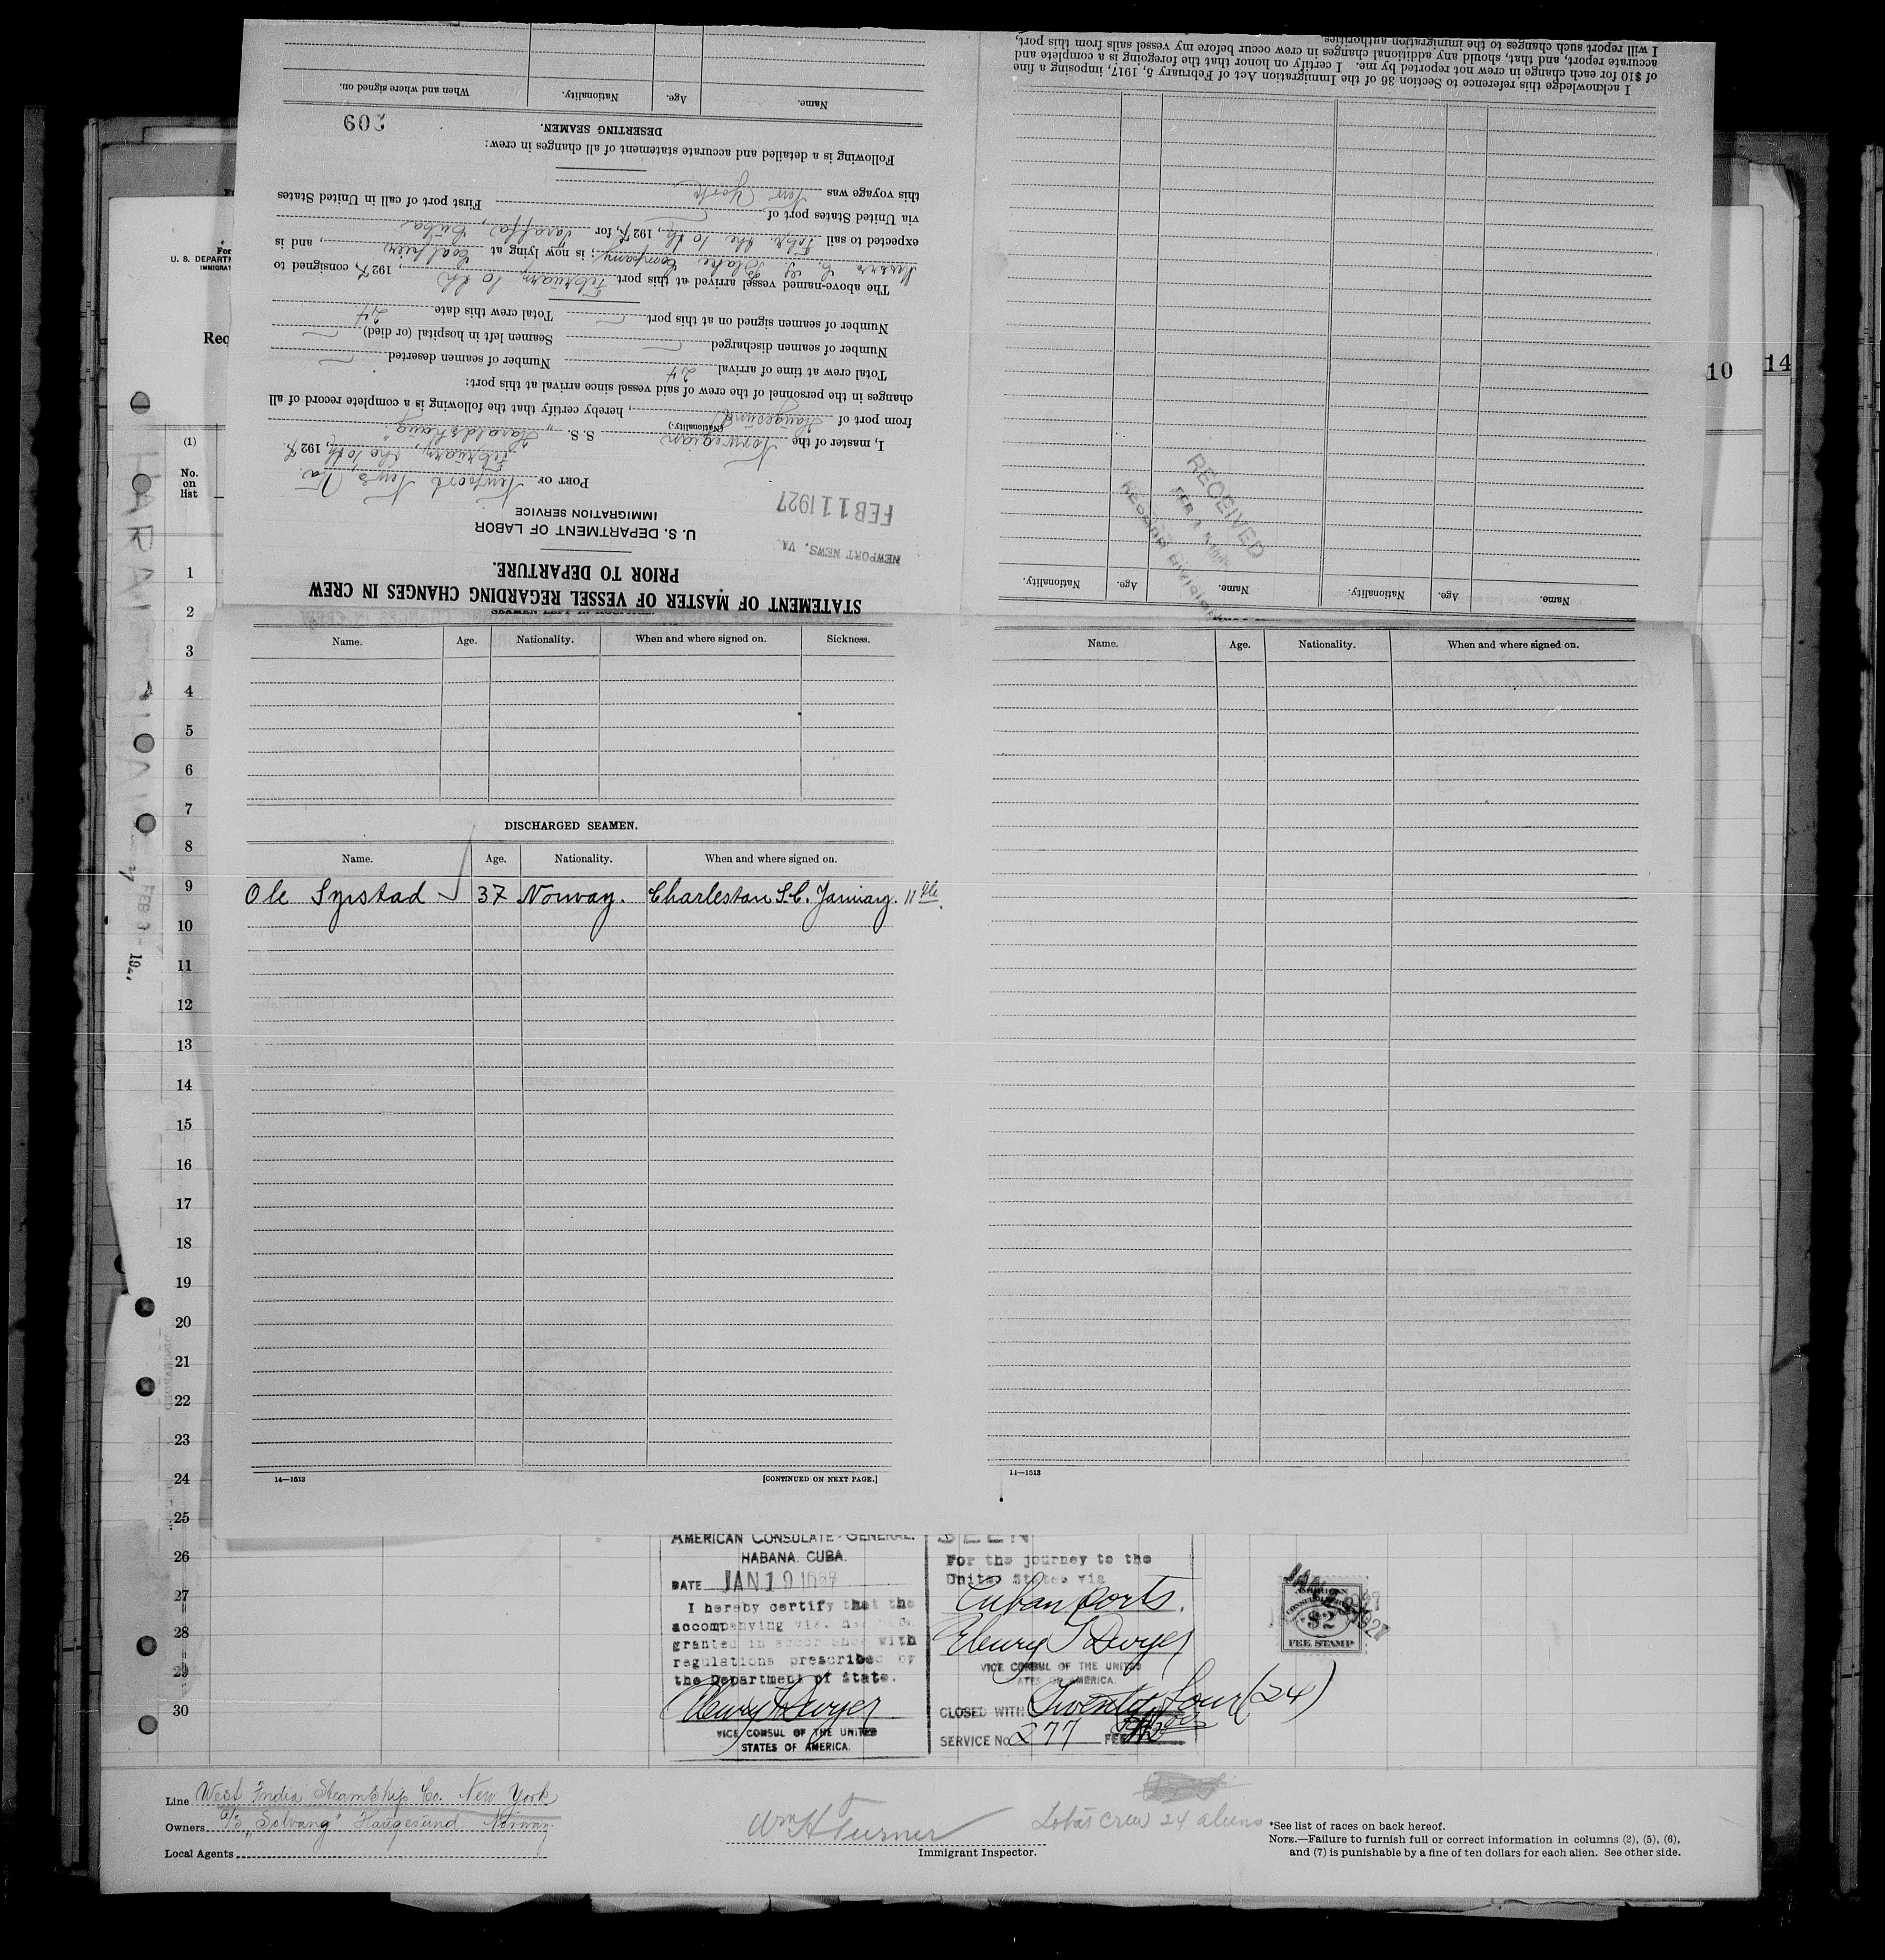 STATEMENT OF MASTER OF VESSEL REGARDING CHANGES IN CREW
PRIOR TO DEPARTURE.
U. S. DEPARTMENT OF LABOR
IMMIGRATION SERVICE
NEWPORT NEWS, VA.
FEB 11 1927
PORT OF Newport News Va.
February, the 10th, 1927.
I, master of the Norwegian S. S. "Haraldshaug"
(Nationality.)
from port of Haugesund, hereby certify that the following is a complete record of all
changes in the personnel of the crew of said vessel since arrival at this port:
Total crew at time of arrival 24 Number of seamen deserted
Number of seamen discharged Seamen left in hospital (or died)
Number of seamen signed on at this port Total crew this date 24
The above-named vessel arrived at this port February 10th, 1927, consigned to
Blake Company; is now lying at Coalpier, and is
expected to sail Febr. the 10th, 1927, for Tarafa, Cuba
via United States port of First port of call in United States
this voyage was New York
Following is a detailed and accurate statement of all changes in crew:
DESERTING SEAMEN.
209
Name. Age. Nationality. When and where signed on.
Name. Age. Nationality. Name. Age. Nationality.
RECEIVED
FEB 1
RECORD DIVISION
I acknowledge this reference to Section 36 of the Immigration Act of February 5, 1917, imposing a fine
of $10 for each change in crew not reported by me. I certify on honor that the foregoing is a complete and
accurate report, and that, should any additional changes in crew occur before my vessel sails from this port,
I will report such changes to the immigration authorities.
SEAMEN LEFT IN HOSPITAL.
Name. Age. Nationality. When and where signed on. Sickness.
DISCHARGED SEAMEN.
Name. Age. Nationality. When and where signed on.
Ole Synstad 37 Norway. Charleston S.C. January. 11th.
14—1513 [CONTINUED ON NEXT PAGE.]
Name. Age. Nationality. When and where signed on.
11—1513
For
U. S. DEPARTM
IMMIGRAT
Req
10 14
(1)
No.
on
list
1
2
3
4
5
6
7
8
9
10
11
12
13
14
15
16
17
18
19
20
21
22
23
24
25
26
27
28
29
30
AMERICAN CONSULATE GENERAL.
HABANA. CUBA.
DATE JAN 19 1927
I hereby certify that the
accompanying visa has been
granted in accordance with
regulations prescribed by
the Department of State.
Henry T Dwyer
VICE CONSUL OF THE UNITED
STATES OF AMERICA.
SEEN
For the journey to the
United States via
Cuban ports.
Henry T Dwyer
VICE CONSUL OF THE UNITED
STATES OF AMERICA.
CLOSED WITH Twenty four (24)
SERVICE No 277 FEE
AMERICAN
CONSULAR SERVICE
$2
FEE STAMP
Line West India Steamship Co. New York
Owners A/S "Solvang" Haugesund Norway.
Local Agents
Wm H Turner
Immigrant Inspector.
Total crew 24 aliens
*See list of races on back hereof.
NOTE.—Failure to furnish full or correct information in columns (2), (5), (6),
and (7) is punishable by a fine of ten dollars for each alien. See other side.